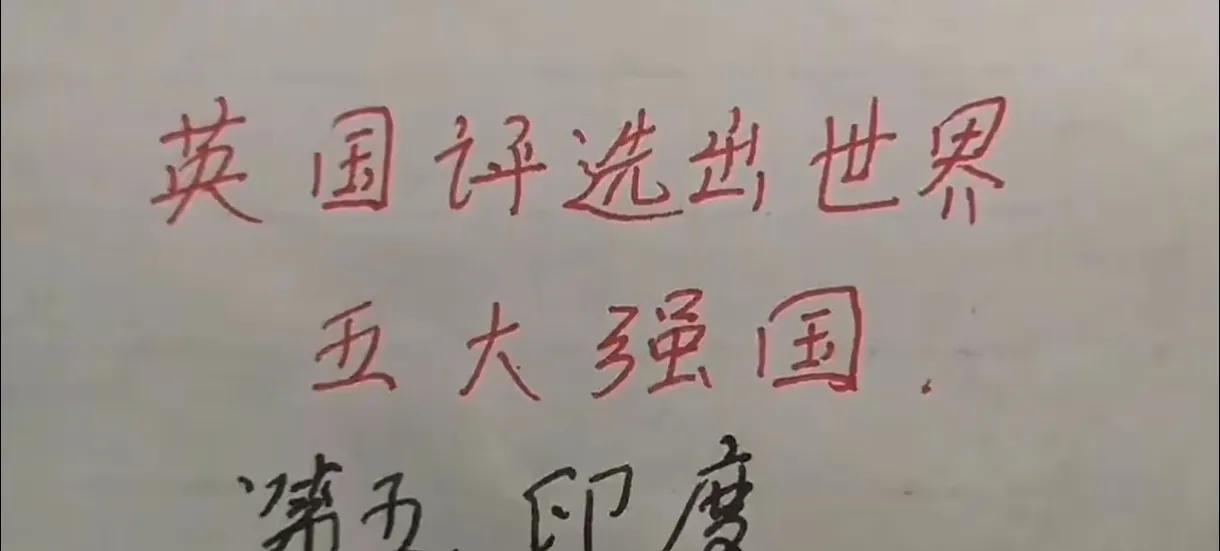 英国评选出世界
五大强国.
第五 印度